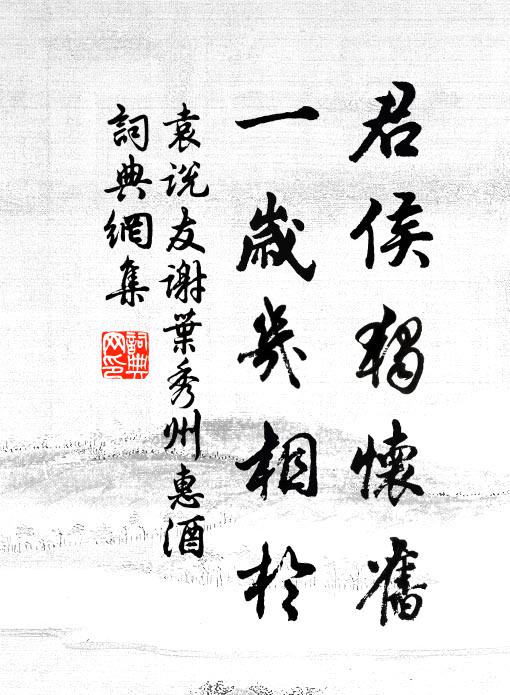 君侯獨懷舊
一歲幾相於
袁说友谢葉秀州惠酒
詞典網集
詞典网印